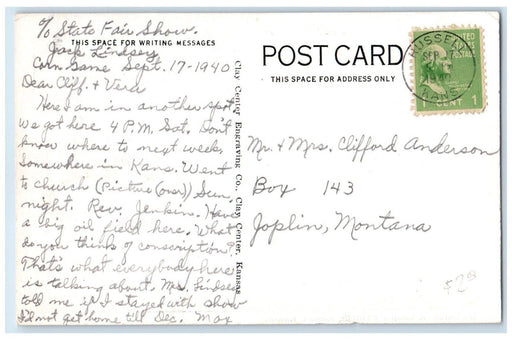 % State Fair Show.
THIS SPACE FOR WRITING MESSAGES
Jack Lindsey
Corn Game Sept. 17-1940
Dear Cliff. & Vera
Here I am in another spot
We got here 4 P.M. Sat. Don't
know where to next week.
Somewhere in Kans. Went
to church (Picture (over)) Sun.
night. Rev. Jenkin. Have
a big oil field here. What
do you think of conscription?
That's what everybody here
is talking about. Mrs. Lindsey
told me if I stayed with show
I'd not get home till Dec. Max
Clay Center Engraving Co., Clay Center, Kansas
POST CARD
THIS SPACE FOR ADDRESS ONLY
RUSSELL
SEP
KANS.
UNITED
POSTAGE
1 CENT 1
Mr. & Mrs. Clifford Anderson
Box 143
Joplin, Montana